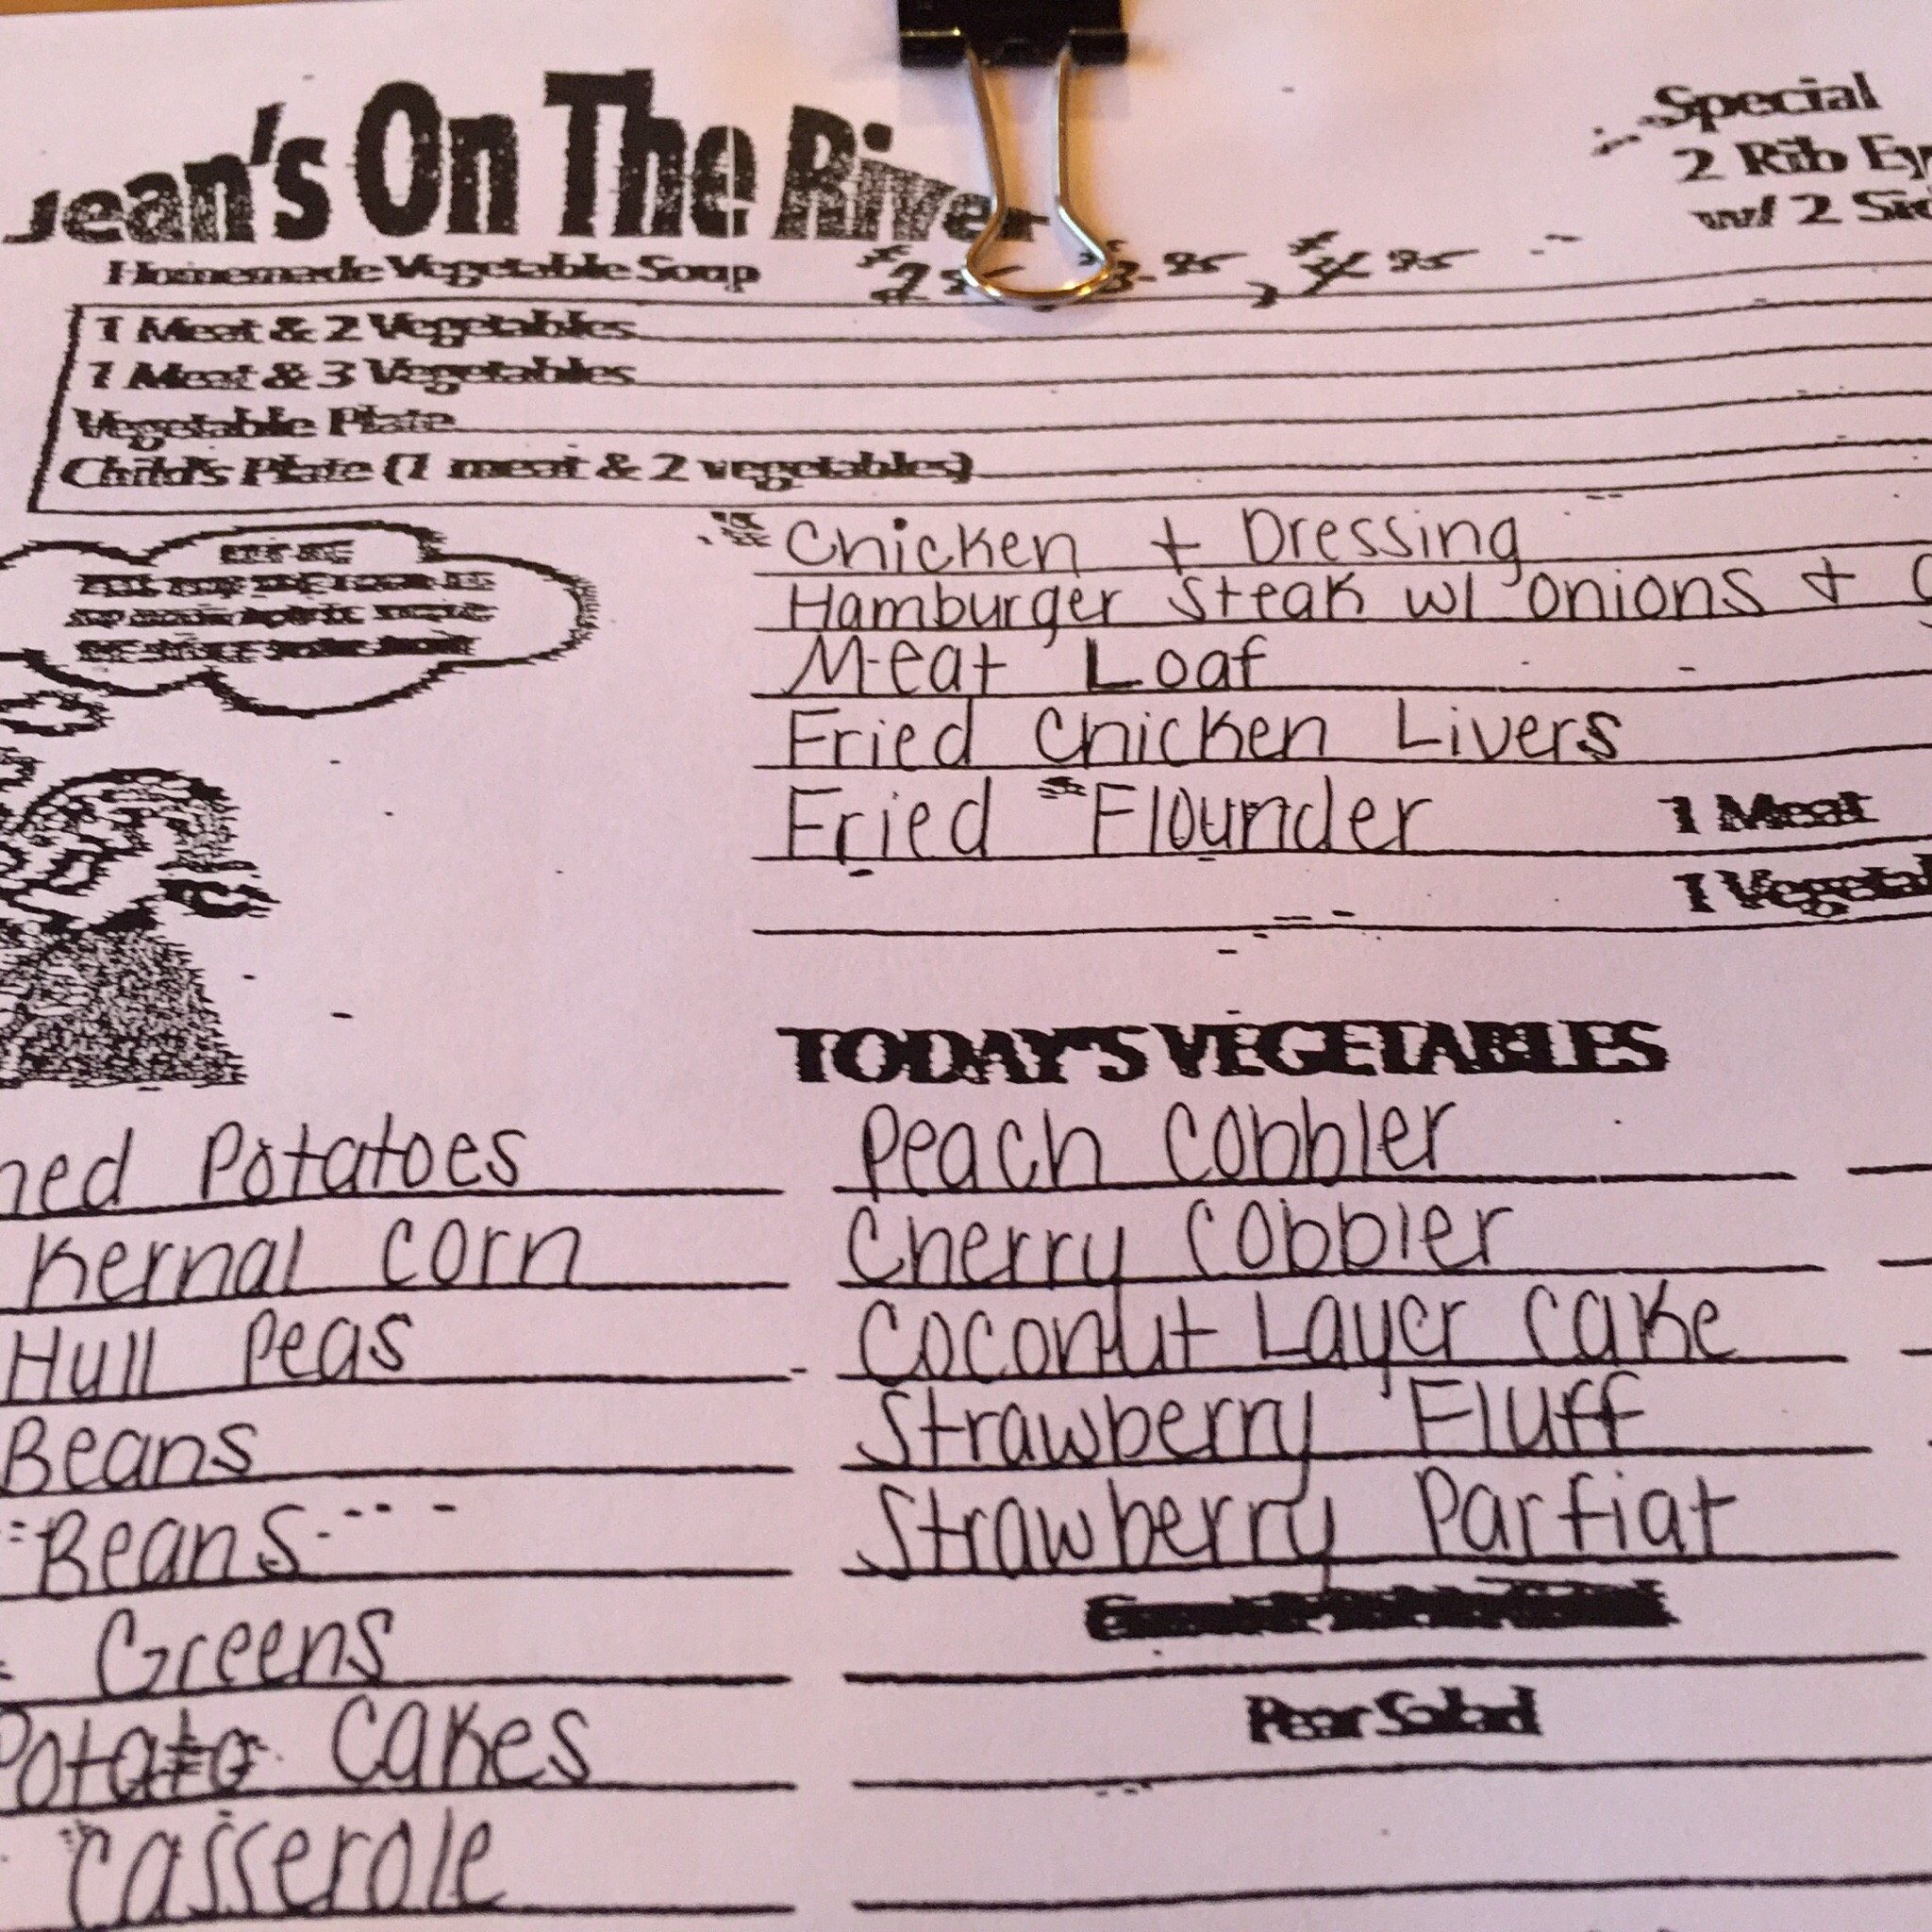 Jean's On The River
Special
2 Rib Ey
w/ 2 Sid
Homemade Vegetable Soup
1 Meat & 2 Vegetables
1 Meat & 3 Vegetables
Vegetable Plate
Child's Plate (1 meat & 2 vegetables)
Chicken + Dressing
Hamburger Steak w/ Onions + G
Meat Loaf
Fried Chicken Livers
Fried Flounder
1 Meat
1 Vegetabl
TODAY'S VEGETABLES
hed Potatoes
Kernal Corn
Hull Peas
Beans
Beans
Greens
Potato Cakes
Casserole
Peach Cobbler
Cherry Cobbler
Coconut Layer Cake
Strawberry Fluff
Strawberry Parfiat
Pear Salad